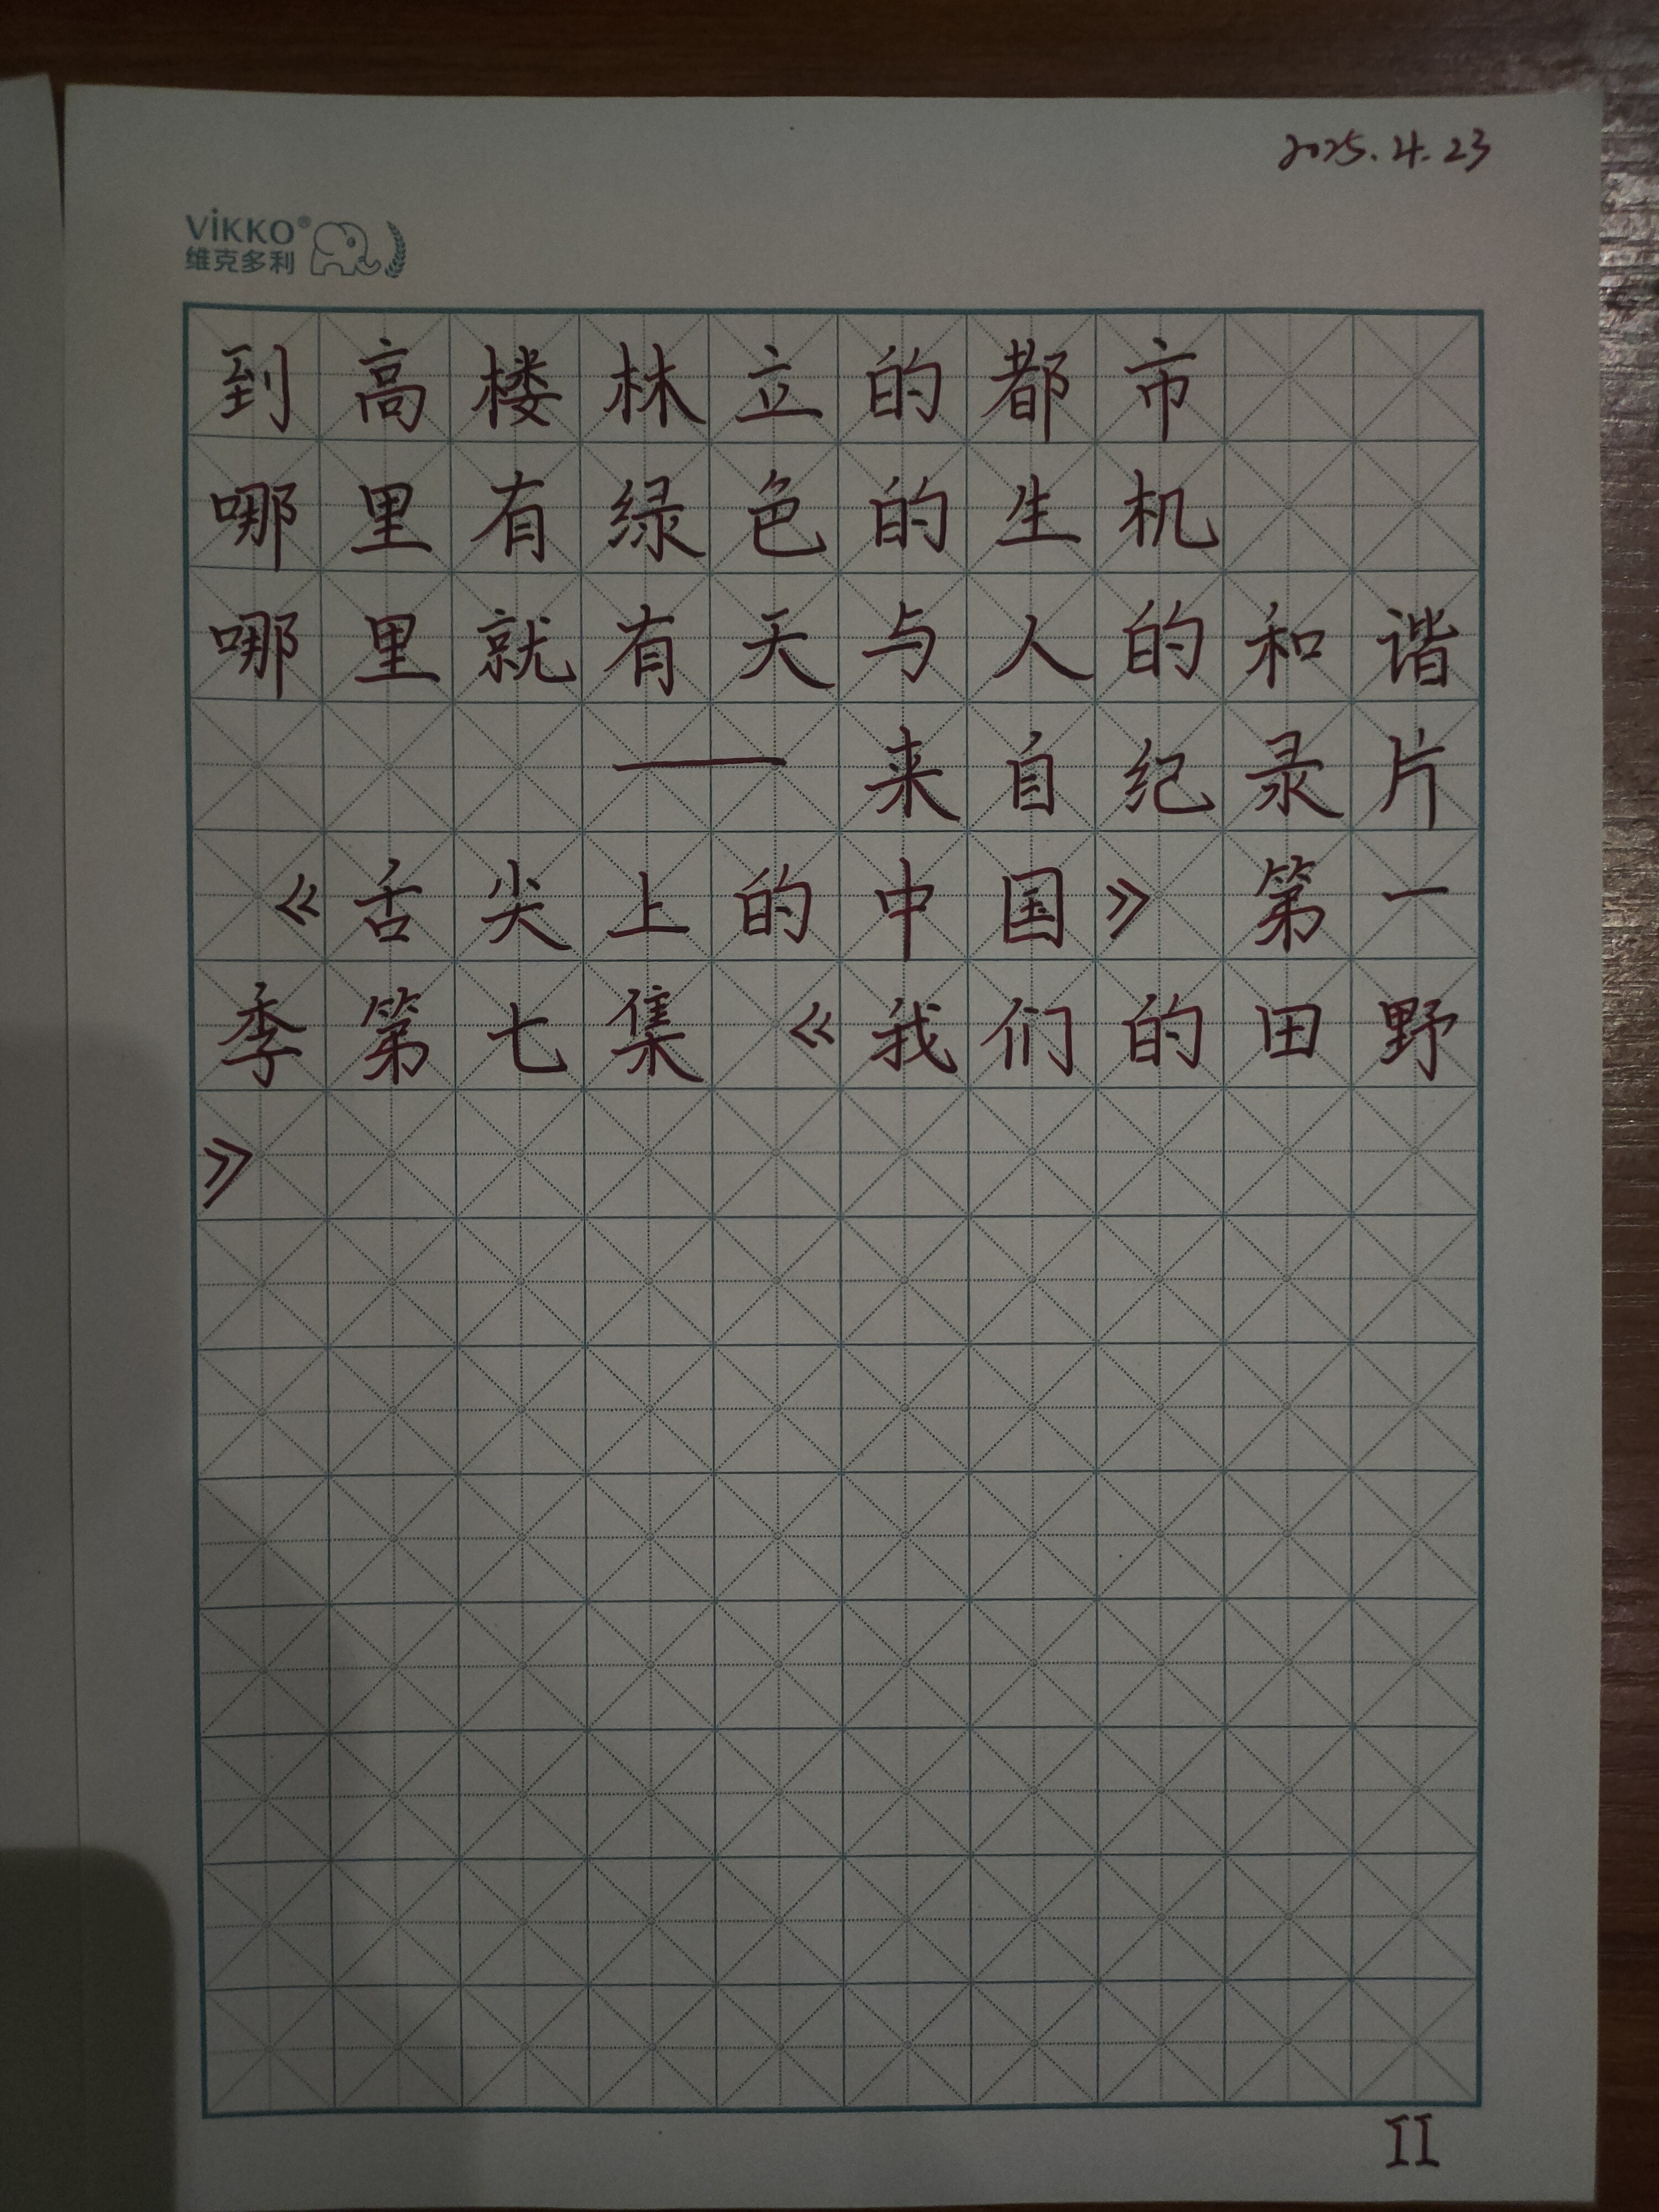 2025.4.23
ViKKO®
维克多利
到高楼林立的都市
哪里有绿色的生机
哪里就有天与人的和谐
——来自纪录片
《舌尖上的中国》第一
季第七集《我们的田野
》
II